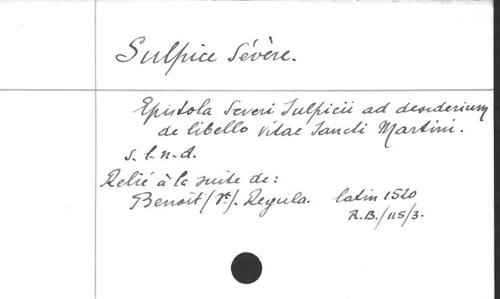 Sulpice Sévère.
Epistola Severi Sulpicii ad desiderium
de libello vitae Sancti Martini.
s. l. n. d.
Relié à la suite de:
Benoît (St). Regula. latin 1510
R.B./115/3.